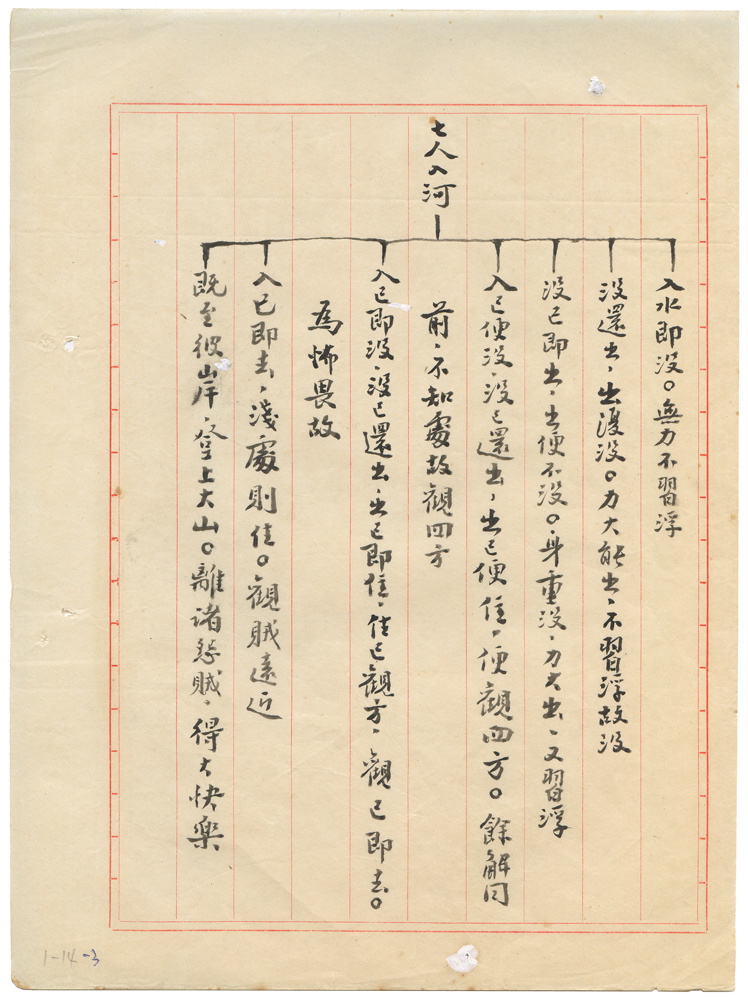 七人入河
入水即没。無力不習浮
没還出，出還没。力大能出，不習浮故没
没已即出，出便不没。身重没，力大出，又習浮
入已便没，没已還出，出已便住，便觀四方。餘解同
前，不知處故觀四方
入已即没，没已還出，出已即住，住已觀方，觀已即去。
為怖畏故
入已即去，淺處則住。觀賊遠近
既至彼岸，登上大山。離諸怨賊，得大快樂
1-14-3